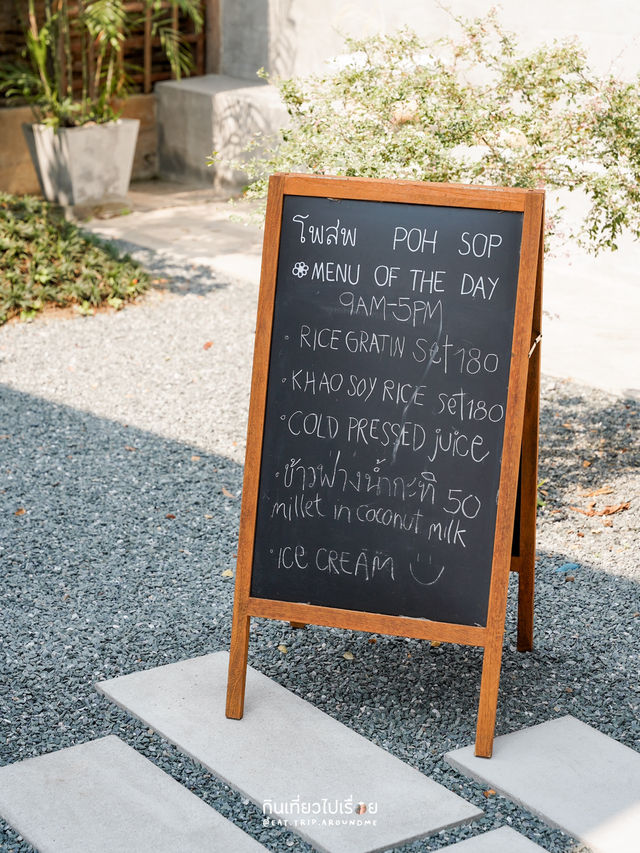 โพสพ POH SOP
MENU OF THE DAY
9AM-5PM
• RICE GRATIN Set 180
• KHAO SOY RICE set 180
• COLD PRESSED juice
• ข้าวฟ่างน้ำกะทิ 50
millet in coconut milk
• ICE CREAM
กินเที่ยวไปเรื่อย
@EAT.TRIP.AROUNDME